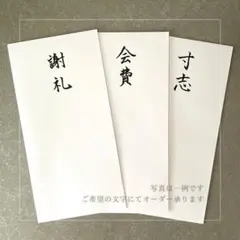 謝礼
会費
寸志
写真は一例です
ご希望の文字にてオーダー承ります